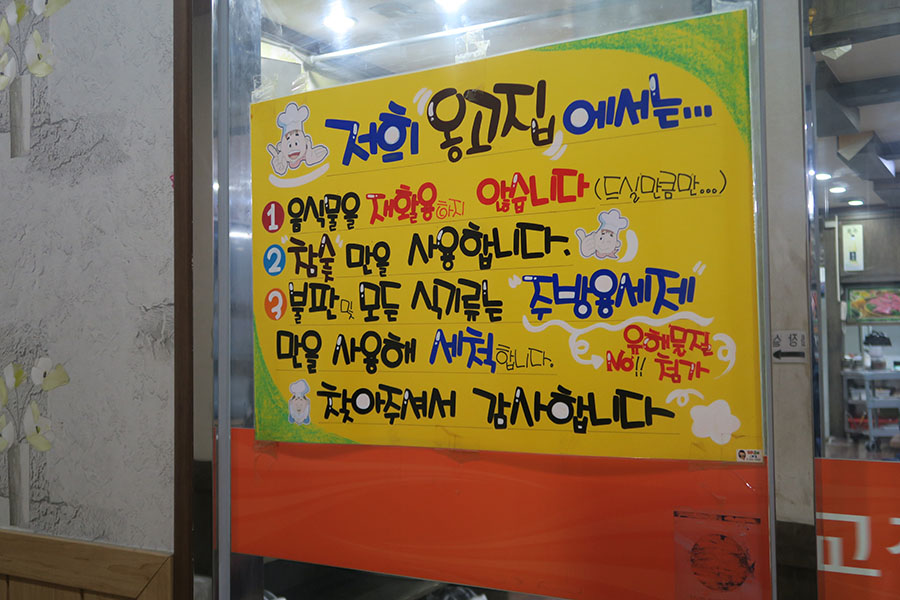 저희 옹고집 에서는...
1 음식물을 재활용하지 않습니다 (드실만큼만...)
2 "참숯"만을 사용합니다.
3 불판 및 모든 식기류는 "주방용세제"
만을 사용해 세척합니다.
유해물질
No!! 첨가
찾아주셔서 감사합니다